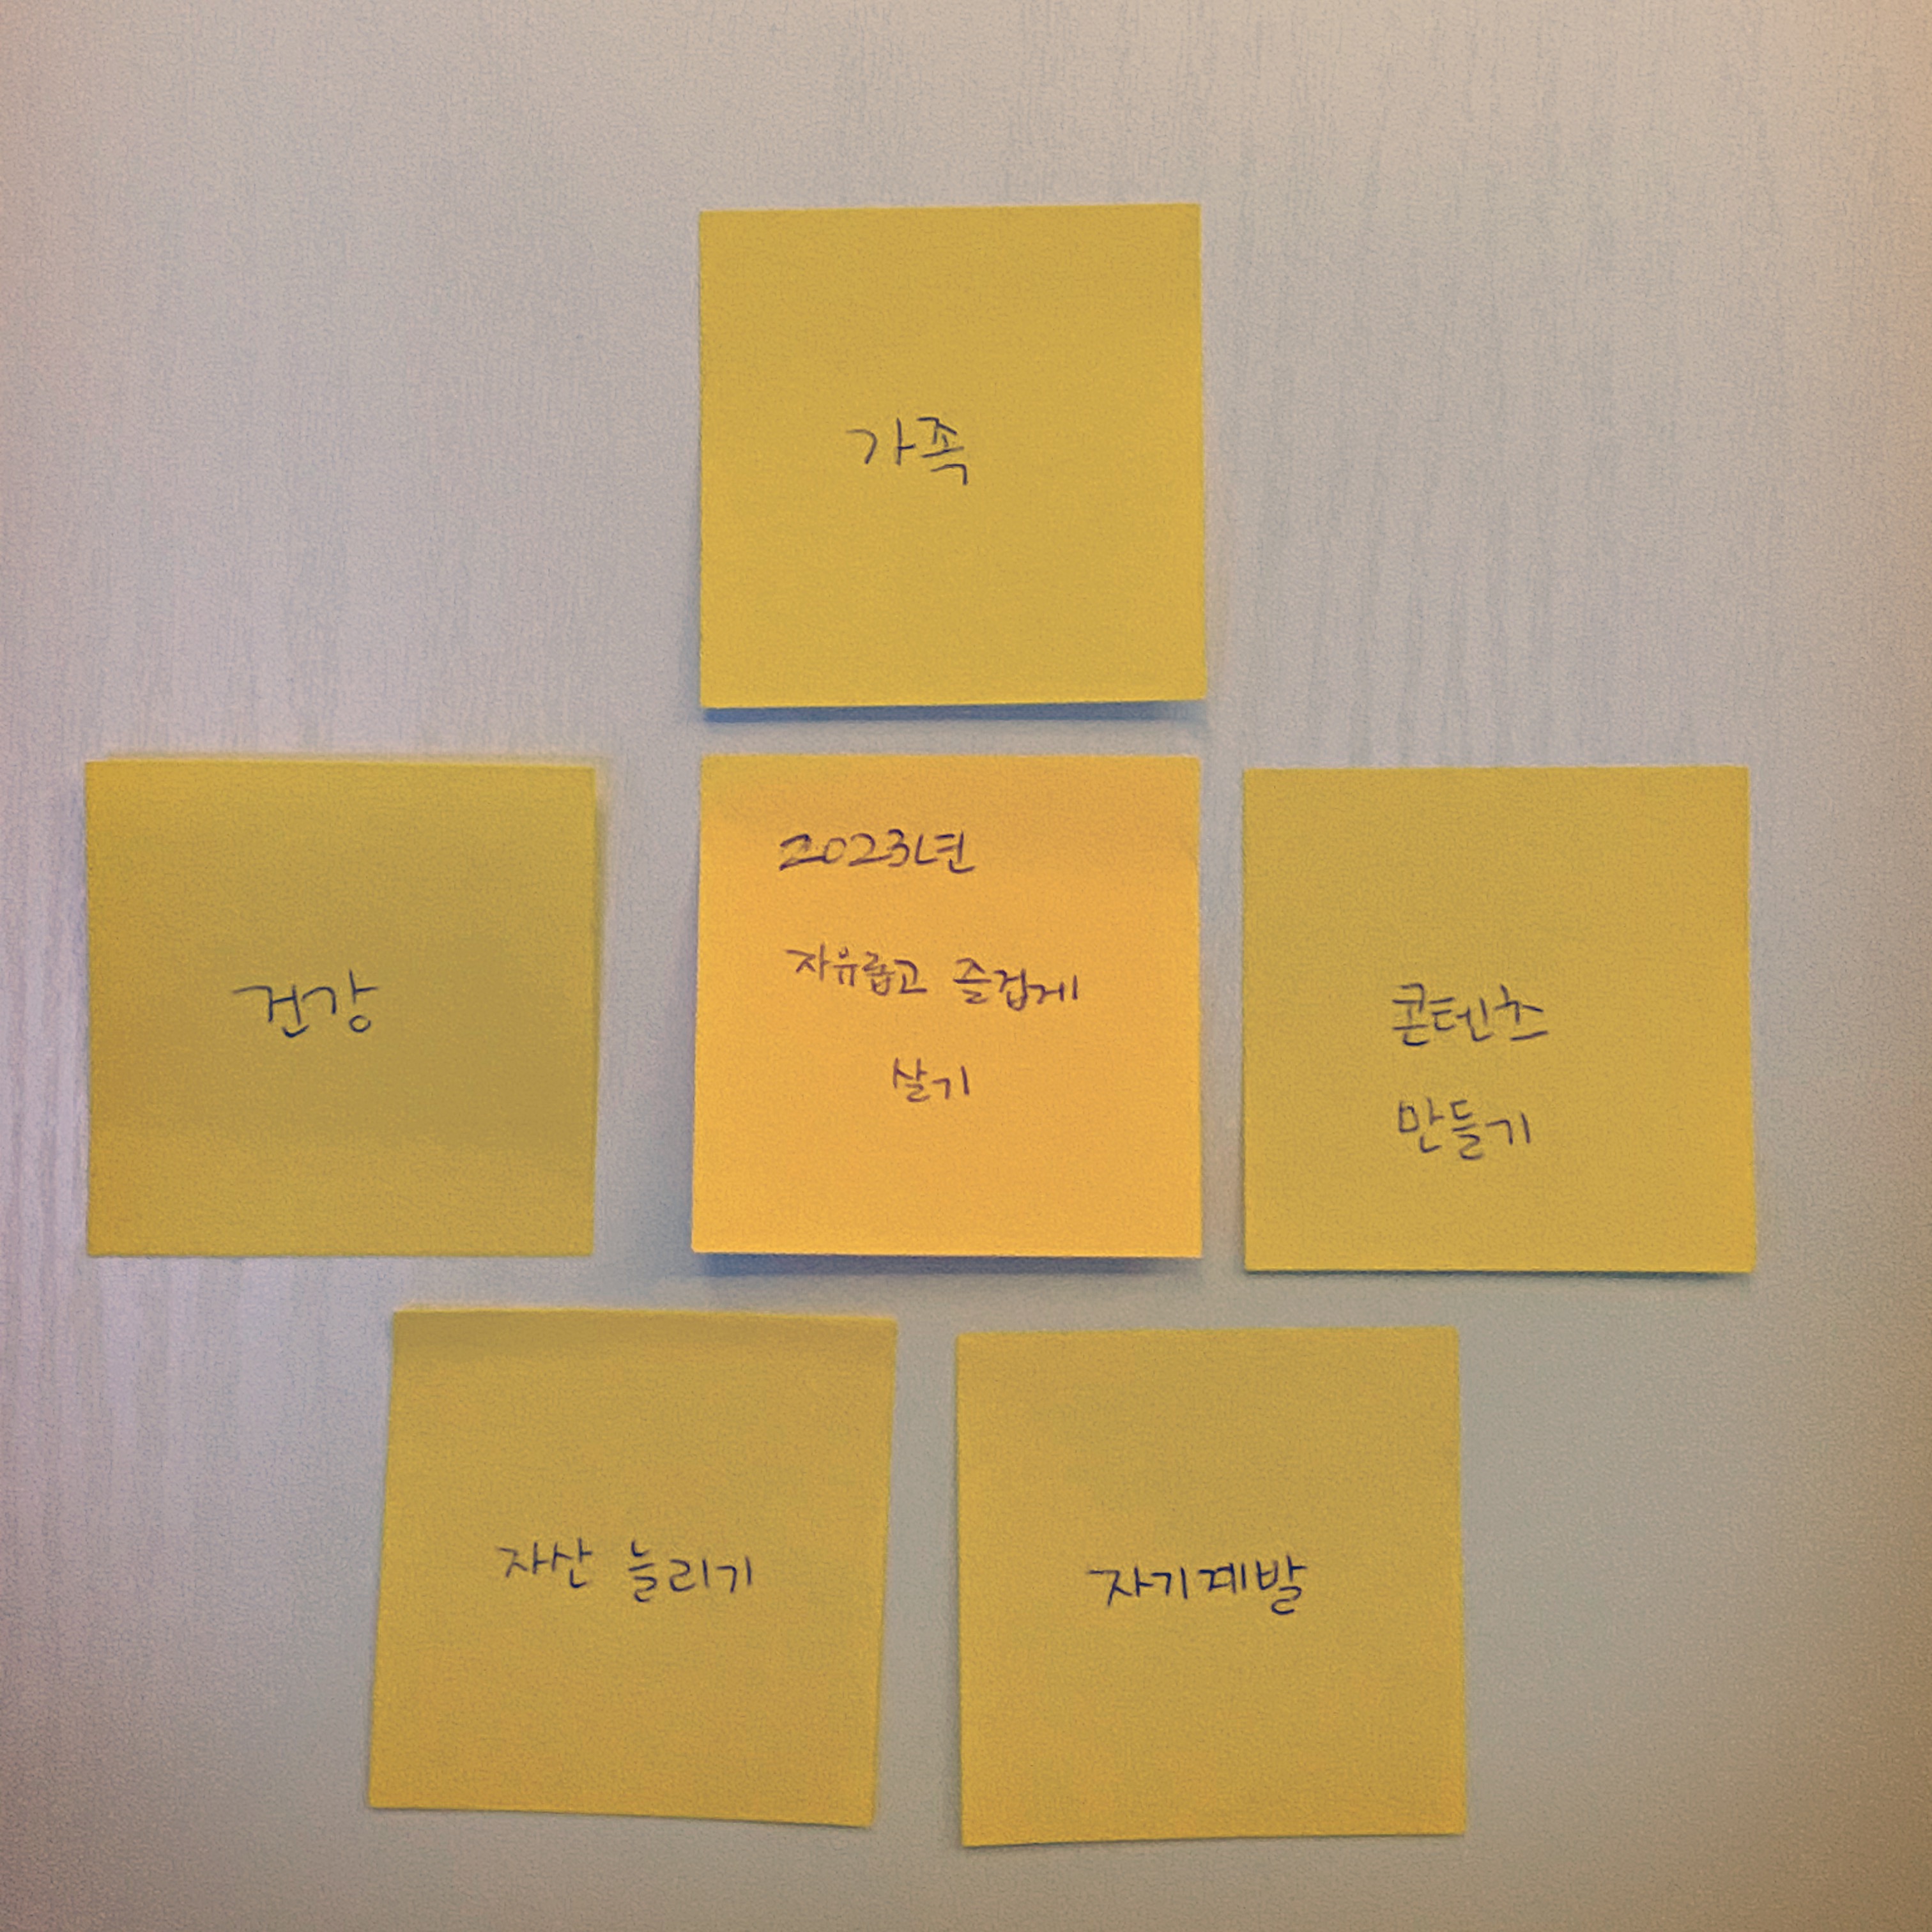 가족
건강
2023년
자유롭고 즐겁게
살기
콘텐츠
만들기
자산 늘리기
자기계발